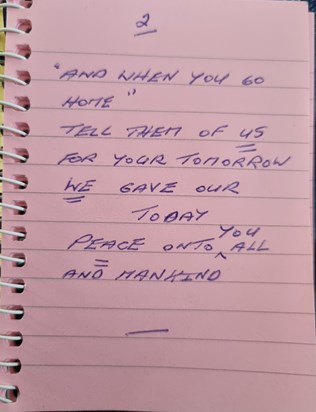 2
"AND WHEN YOU GO
HOME"
TELL THEM OF US
FOR YOUR TOMORROW
WE GAVE OUR
TODAY
PEACE ONTO YOU ALL
AND MANKIND